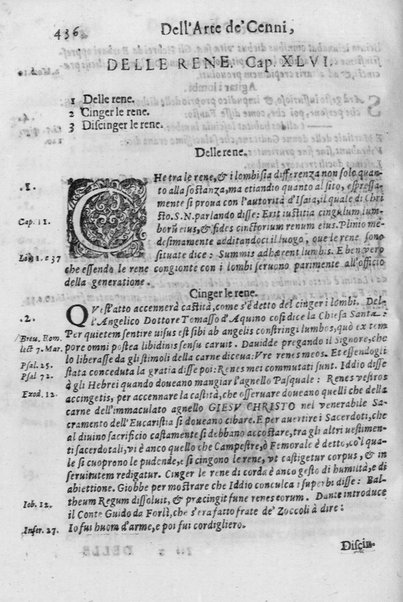 436
Dell'Arte de' Cenni,
DELLE RENE. Cap. XLVI.
1 Delle rene.
2 Cinger le rene.
3 Discinger le rene.
Delle rene.
.1.
CHe tra le rene, & i lombi sia differenza non solo quan-
to alla sostanza, ma etiandio quanto al sito, espressa-
mente si proua con l'autorità d'Isaia, il quale di Chri
Cap. 11.
sto. S.N. parlando disse: Erit iustitia cingulum lum-
borũ eius, & fides cinctorium renum eius. Plinio me-
desimamente additandoci il luogo, oue le rene sono
situate dice: Summis adhærent lumbis. E ben vero
che essendo le rene congionte con i lombi seruono parimente all'officio
della generatione.
Cinger le rene.
.2.
QVest'atto accennerà castità, come s'è detto del cinger i lombi. Del-
l'Angelico Dottore Tomasso d'Aquino così dice la Chiesa Santa:
Per quietem sentire uisus est sibi ab angelis constringi lumbos, quo ex tem
7. Mar.
pore omni postea libidinis sensu caruit. Dauidde pregando il Signore, che
Psal. 25.
lo liberasse da gli stimoli della carne diceua: Vre renes meos. Et essendogli
Psal. 72.
stata conceduta la gratia disse poi: Renes mei commutati sunt. Iddio disse
Exod. 12.
à gli Hebrei quando doueano mangiar l'agnello Pasquale: Renes vestros
accingetis, per accennare la castità, che osseruare doueano quelli che della
carne dell'immaculato agnello GIESV CHRISTO nel venerabile Sa-
cramento dell'Eucaristia si doueano cibare. E per auertire i Sacerdoti, che
al diuino sacrificio castamente si debbano accostare, tra gli altri uestimen-
ti sacerdotali, vi è anco quello che Campestre, ò Femorale è detto, co'l qua-
le si cuoprono le pudende, e si cingono le rene, vt castigetur corpus, & in
seruitutem redigatur. Cinger le rene di corda è anco gesto di humiltà, e di
abiettione. Giobbe per mostrare che Iddio conculca i superbi disse: Bal-
Iob. 12.
theum Regum dissoluit, & præcingit fune renes eorum. Dante introduce
il Conte Guido da Forlì, che s'era fatto frate de' Zoccoli à dire:
Infer. 27.
Io fui huom d'arme, e poi fui cordigliero.
Discin-